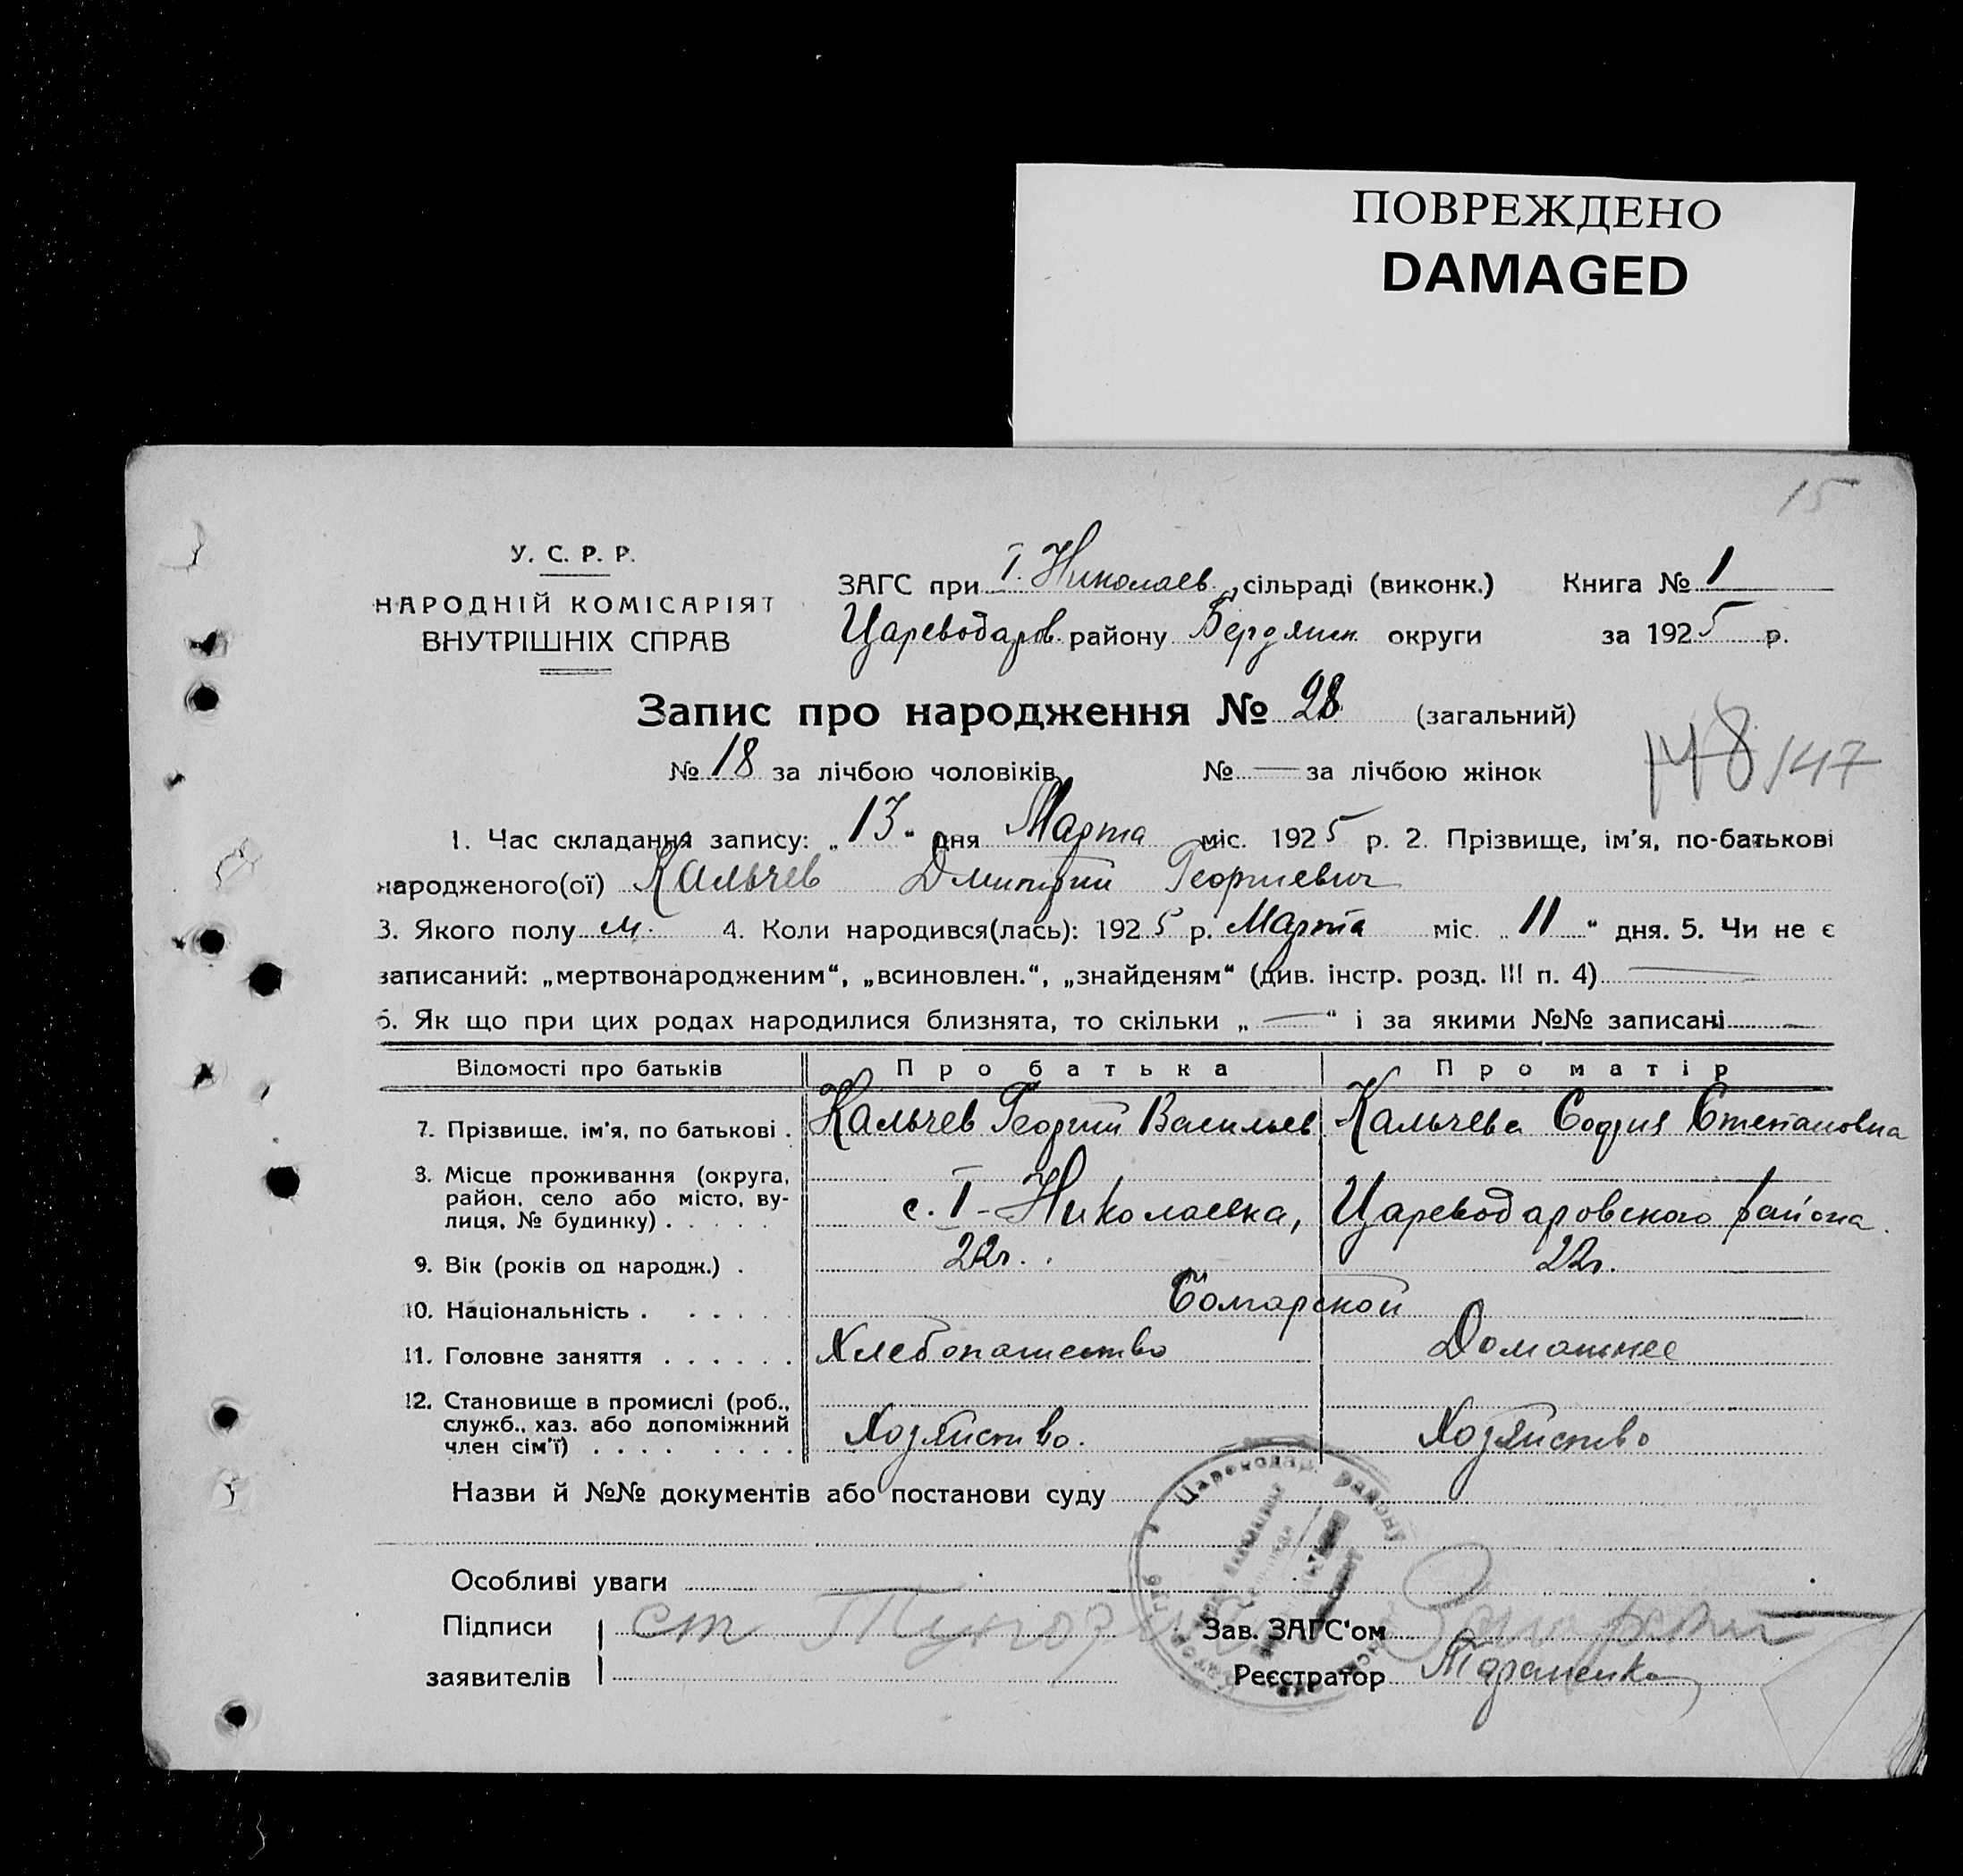 ПОВРЕЖДЕНО
DAMAGED
15
У. С. Р. Р.
НАРОДНІЙ КОМІСАРІЯТ
ВНУТРІШНІХ СПРАВ
ЗАГС при I. Николаев. сільраді (виконк.) Книга № 1
Цареводаров. району Бердянск. округи за 1925 р.
Запис про народження № 28 (загальний)
№ 18 за лічбою чоловіків № — за лічбою жінок
148/147
1. Час складання запису: „13“ дня Марта міс. 1925 р. 2. Прізвище, ім'я, по-батькові
народженого(ої) Кальчев Дмитрий Георгиевич
3. Якого полу м. 4. Коли народився(лась): 1925 р. Марта міс. „11“ дня. 5. Чи не є
записаний: „мертвонародженим“, „всиновлен.“, „знайденям“ (див. інстр. розд. III п. 4) —
6. Як що при цих родах народилися близнята, то скільки „—“ і за якими №№ записані —
Відомості про батьків Про батька Про матір
7. Прізвище, ім'я, по батькові . Кальчев Георгий Васильев Кальчева София Степановна
8. Місце проживання (округа,
район, село або місто, ву-
лиця, № будинку) . . . . . с. I-Николаевка, Цареводаровского района.
9. Вік (років од народж.) . 22г. 22г.
10. Національність . . . . . Болгарской
11. Головне заняття . . . . . . Хлебопашество Домашнее
12. Становище в промислі (роб.,
служб., хаз. або допоміжний
член сім'ї) . . . . . . . . Хозяйство. Хозяйство
Назви й №№ документів або постанови суду
Цареводар. району
Особливі уваги
Підписи
заявителів
Зав. ЗАГС'ом
Реєстратор